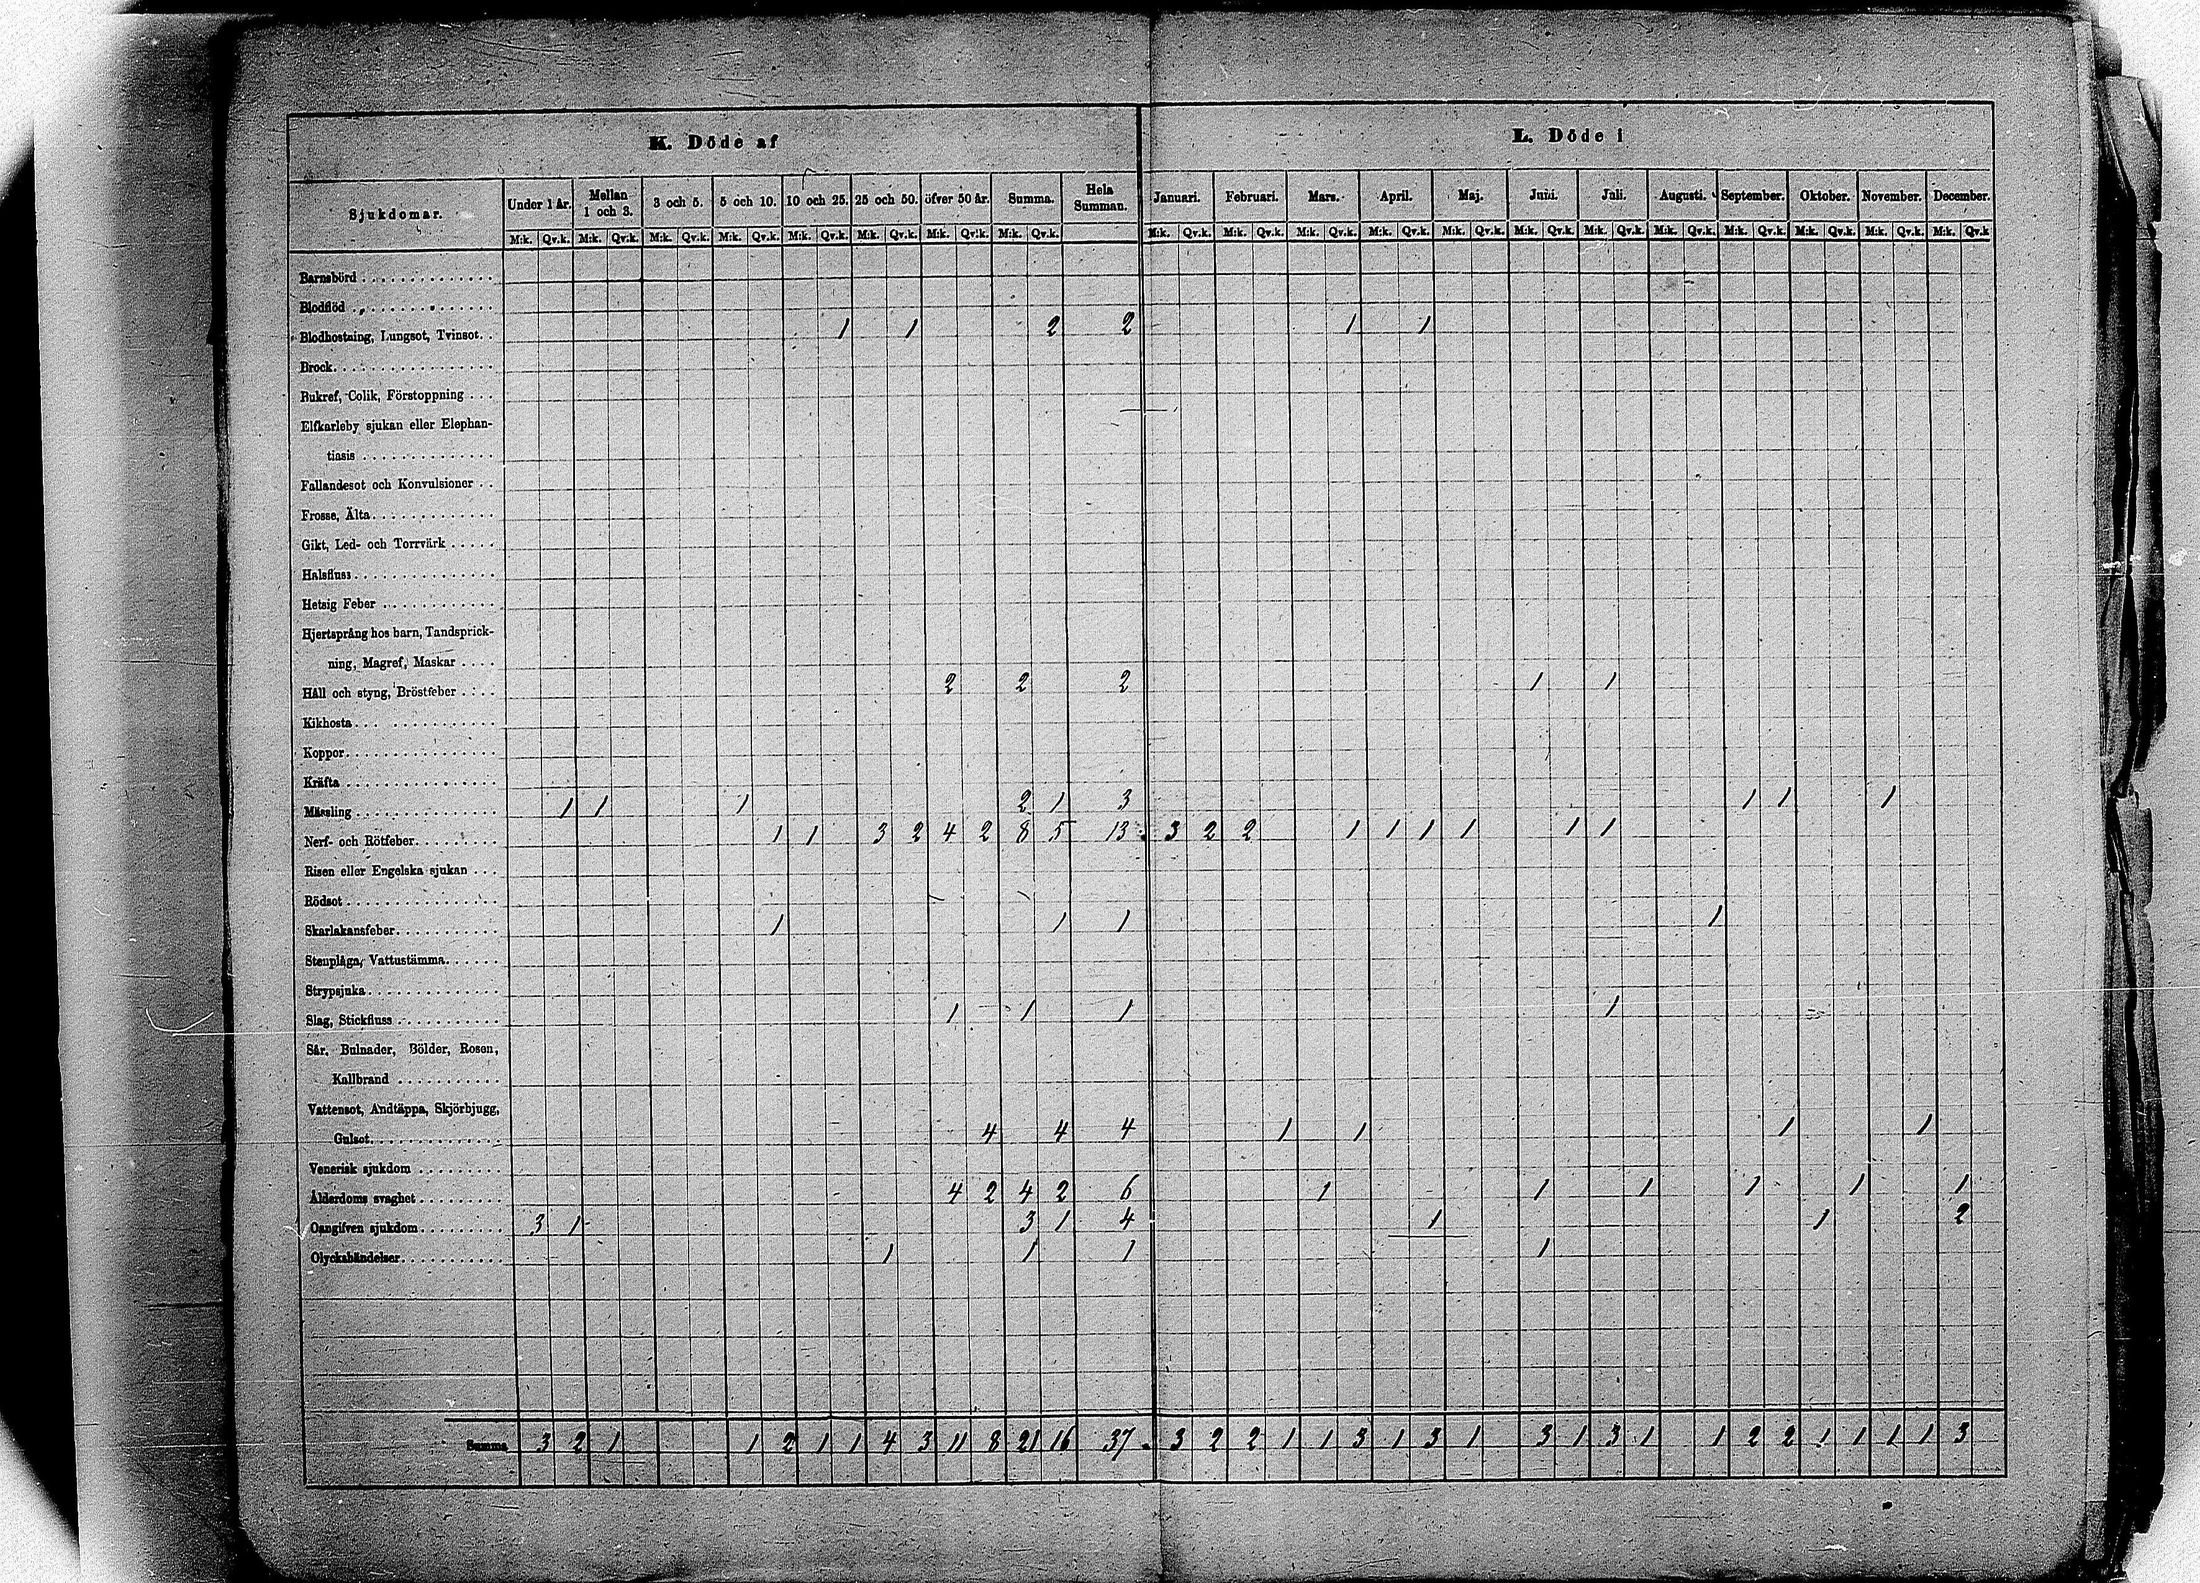 K. Döde af L. Döde i
Sjukdomar. Under 1 år. Mellan 1 och 3. 3 och 5. 5 och 10. 10 och 25. 25 och 50. öfver 50 år. Summa. Hela Summan. Januari. Februari. Mars. April. Maj. Juni. Juli. Augusti. September. Oktober. November. December.
M:k. Qv.k. M:k. Qv:k. M:k. Qv:k. M:k. Qv.k. M:k. Qv.k. M:k. Qv.k. M:k. Qv.k. M:k. Qv.k. M:k. Qv.k. M:k. Qv.k. M:k. Qv.k. M:k. Qv.k. M:k. Qv.k. M:k. Qv.k. M:k. Qv.k. M:k. Qv.k. M:k. Qv.k. M:k. Qv.k. M:k. Qv.k. M:k. Qv.k
Barnsbörd
Blodflöd
Blodhostning, Lungsot, Tvinsot. 1 1 2 2 1 1
Brock
Bukref, Colik, Förstoppning
Elfkarleby sjukan eller Elephan-
tiasis
Fallandesot och Konvulsioner
Frosse, Älta
Gikt, Led- och Torrvärk
Halsfluss
Hetsig Feber
Hjertsprång hos barn, Tandsprick-
ning, Magref, Maskar
Håll och styng, Bröstfeber 2 2 2 1 1
Kikhosta
Koppor
Kräfta
Mässling 1 1 1 2 1 3 1 1 1
Nerf- och Rötfeber 1 1 3 2 4 2 8 5 13 3 2 2 1 1 1 1 1 1
Risen eller Engelska sjukan
Rödsot
Skarlakansfeber 1 1 1 1
Stenplåga, Vattustämma
Strypsjuka
Slag, Stickfluss 1 1 1 1
Sår, Bulnader, Bölder, Rosen,
Kallbrand
Vattensot, Andtäppa, Skjörbjugg,
Gulsot 4 4 4 1 1 1 1
Venerisk sjukdom
Ålderdoms svaghet 4 2 4 2 6 1 1 1 1 1 1
Oangifven sjukdom 3 1 3 1 4 1 1 2
Olyckshändelser 1 1 1 1
Summa 3 2 1 1 2 1 1 4 3 11 8 21 16 37 3 2 2 1 1 3 1 3 1 3 1 3 1 1 2 2 1 1 1 1 3